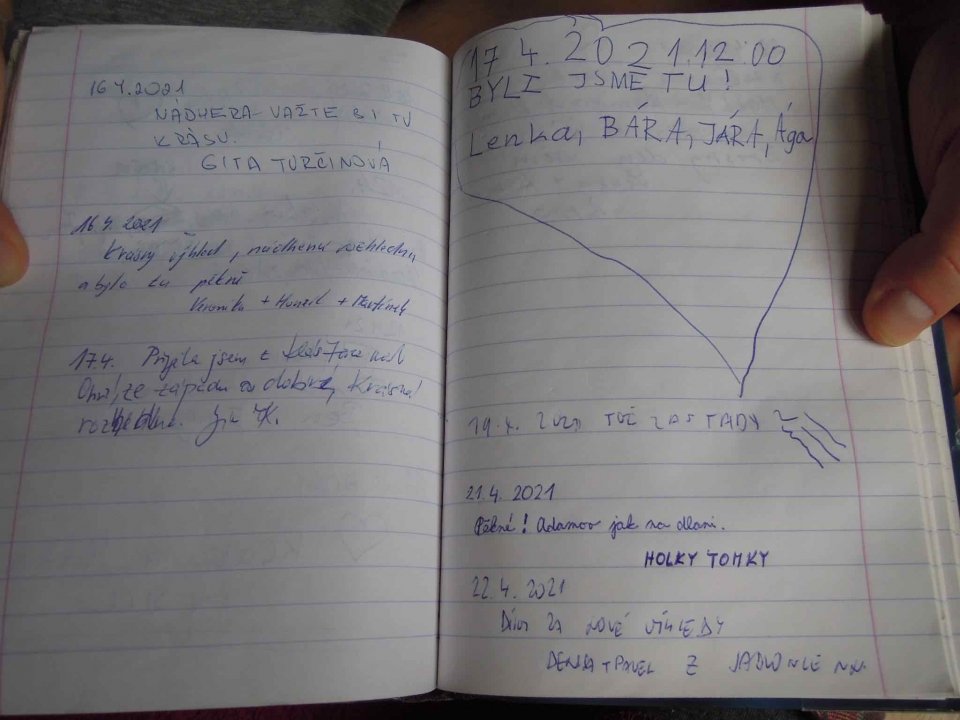 16 4.2021
NÁDHERA - VAŽTE SI TU
KRÁSU.
GITA TURČINOVÁ
16 4. 2021
Krásný výhled, nádherná rozhledna,
a bylo tu pěkně
Veronika + Honzík + Martínek
17.4. Přijela jsem z
Ohří, ze západu
rozhledna.
17 4. 2021. 12:00
BYLI JSME TU!
Lenka, BÁRA, JÁRA, Ága
19. 4. 2021 TUČ
21.4. 2021
Pěkné! Adamov jak na dlani.
HOLKY TOMKY
22.4. 2021
Díky za NOVÉ VÝHLEDY
DENISA + PAVEL Z JABLONCE N.N.